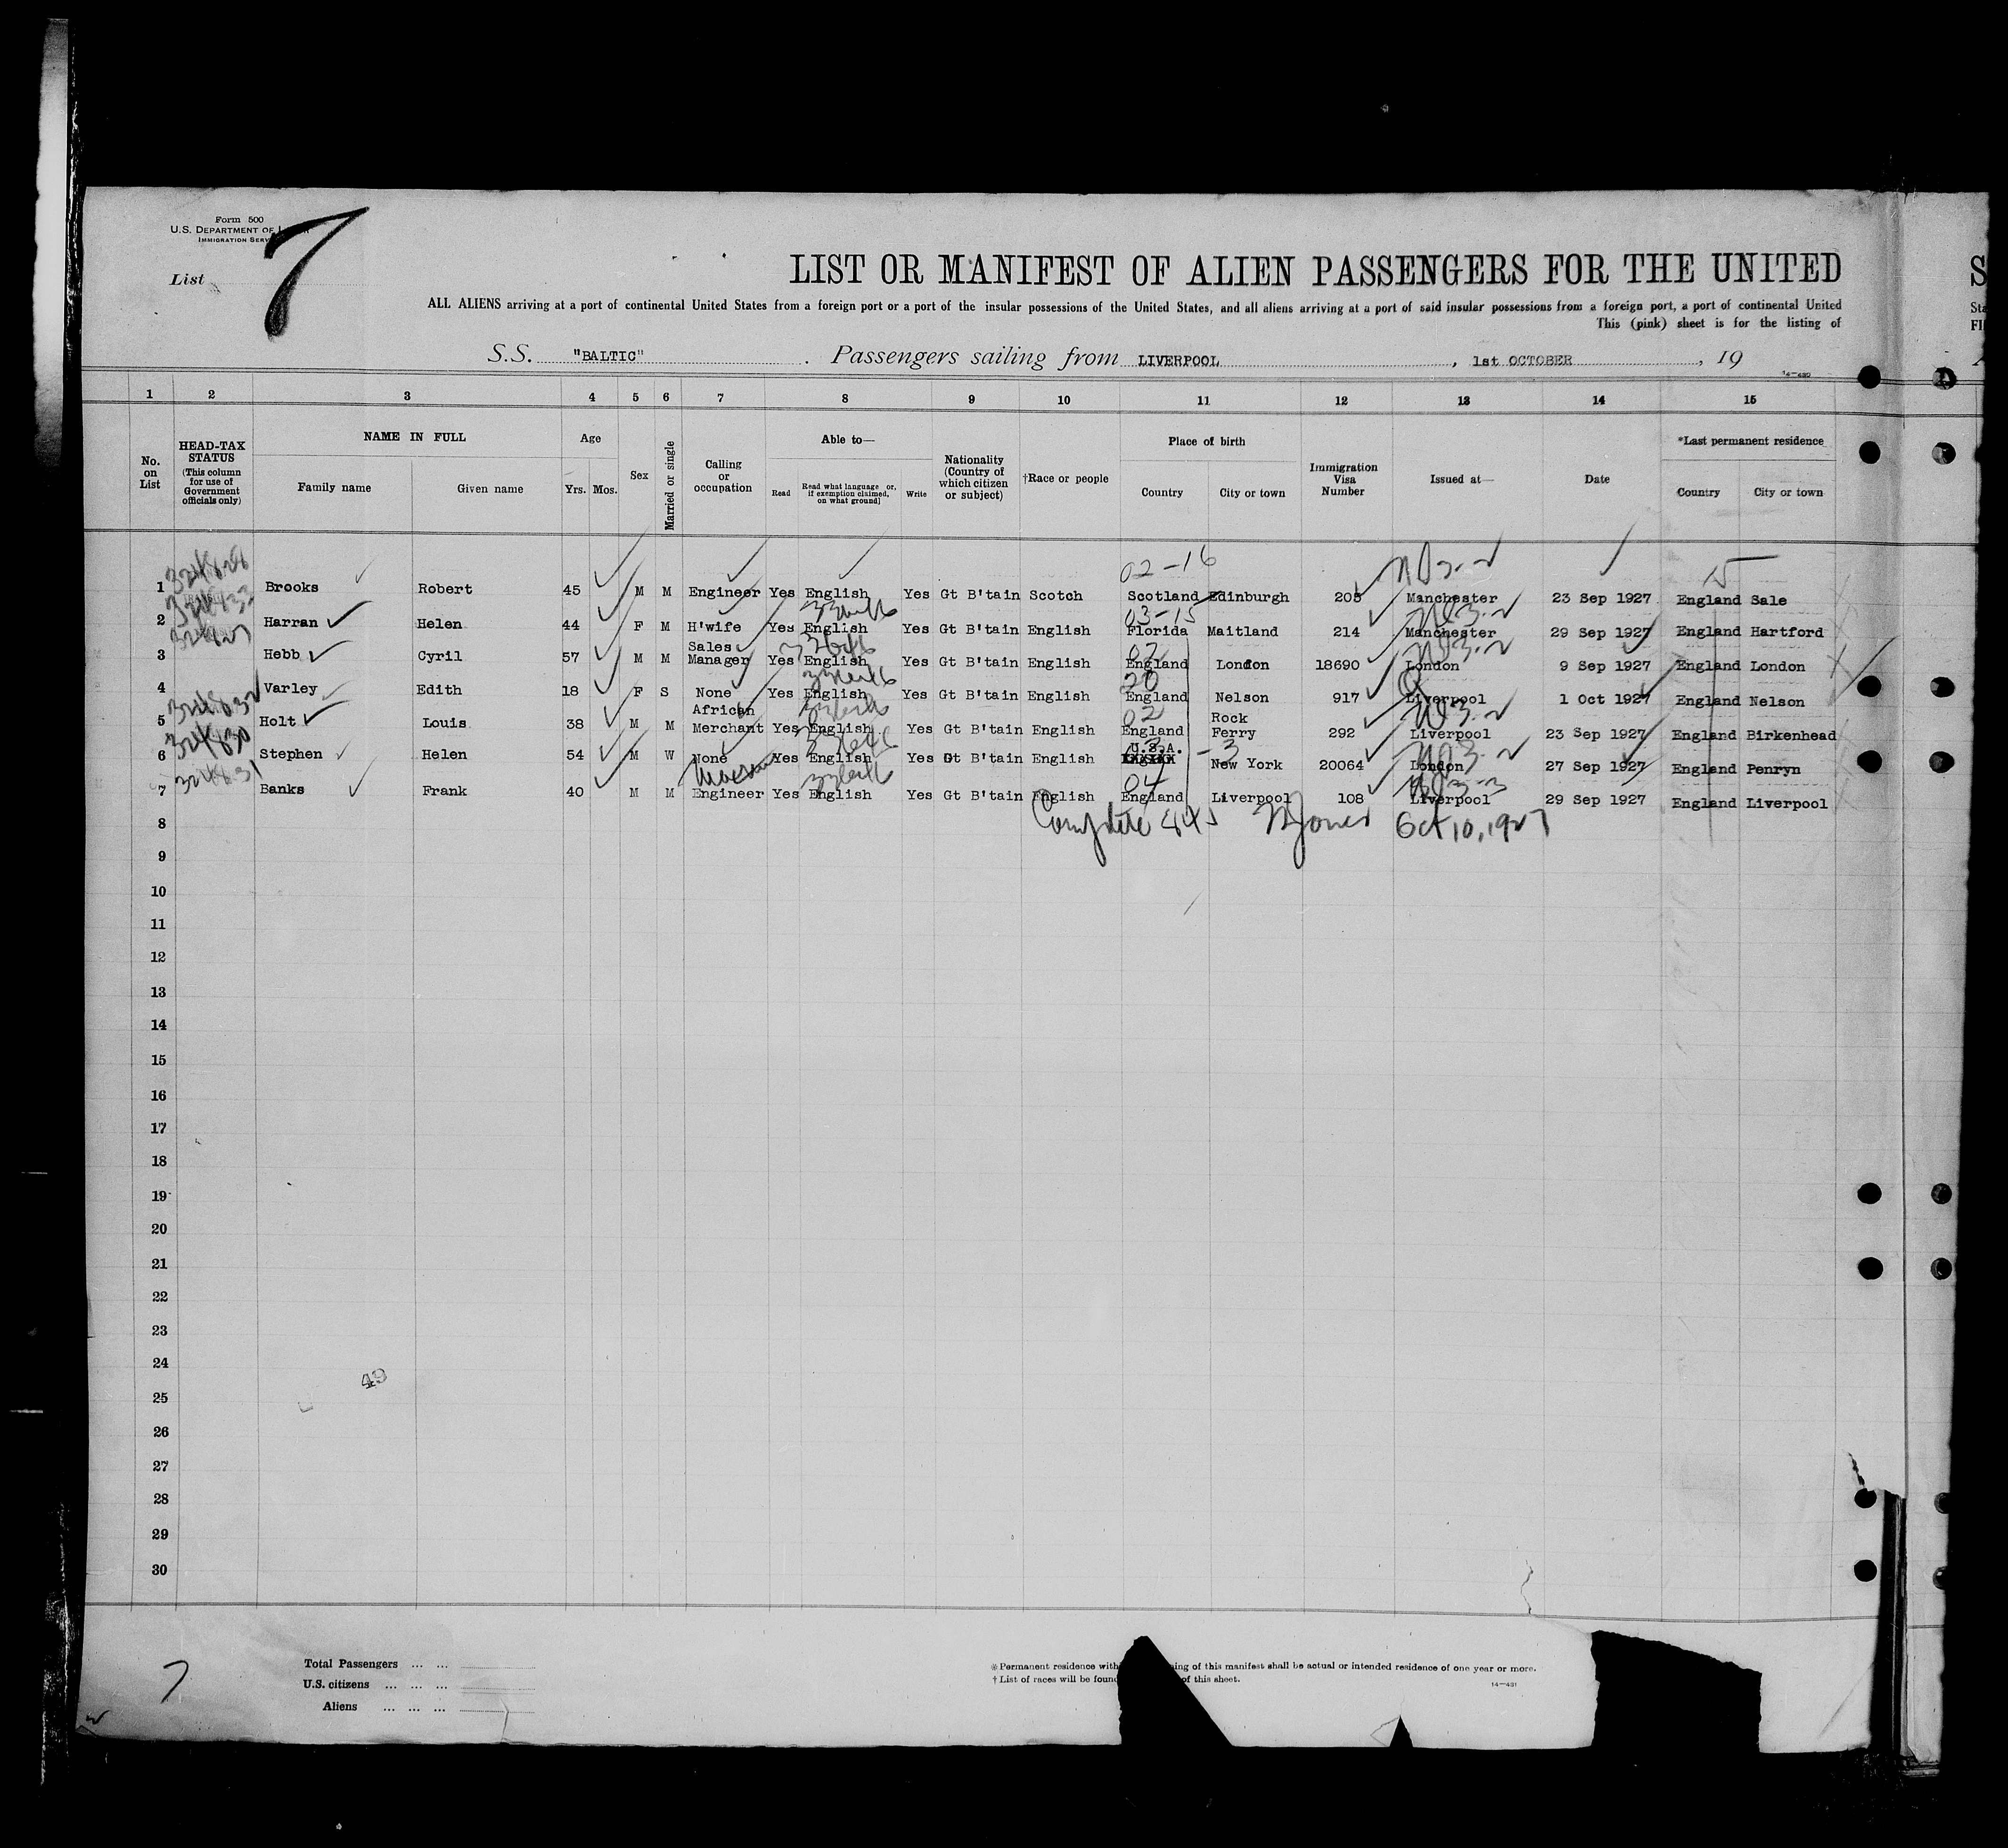 Form 500
U.S. DEPARTMENT OF
IMMIGRATION
List 7
LIST OR MANIFEST OF ALIEN PASSENGERS FOR THE UNITED
ALL ALIENS arriving at a port of continental United States from a foreign port or a port of the insular possessions of the United States, and all aliens arriving at a port of said insular possessions from a foreign port, a port of continental United
This (pink) sheet is for the listing of
S.S. "BALTIC" Passengers sailing from LIVERPOOL, 1st OCTOBER, 19
14-430
1 2 3 4 5 6 7 8 9 10 11 12 13 14 15
No. on List
HEAD-TAX STATUS (This column for use of Government officials only)
NAME IN FULL
Family name Given name
Age
Yrs. Mos.
Sex
Married or single
Calling or occupation
Able to—
Read Read what language or, if exemption claimed, on what ground] Write
Nationality (Country of which citizen or subject)
†Race or people
Place of birth
Country City or town
Immigration Visa Number
Issued at—
Date
*Last permanent residence
Country City or town
02-16 15
1 Brooks Robert 45 M M Engineer Yes English Yes Gt B'tain Scotch Scotland Edinburgh 205 Manchester 23 Sep 1927 England Sale
03-15
2 Harran Helen 44 F M H'wife Yes English Yes Gt B'tain English Florida Maitland 214 Manchester 29 Sep 1927 England Hartford
02
3 Hebb Cyril 57 M M Sales Manager Yes English Yes Gt B'tain English England London 18690 London 9 Sep 1927 England London
20
4 Varley Edith 18 F S None Yes English Yes Gt B'tain English England Nelson 917 Liverpool 1 Oct 1927 England Nelson
02
5 Holt Louis 38 M M African Merchant Yes English Yes Gt B'tain English England Rock Ferry 292 Liverpool 23 Sep 1927 England Birkenhead
6 Stephen Helen 54 M W None Yes English Yes Gt B'tain English U.S.A. New York 20064 London 27 Sep 1927 England Penryn
04
7 Banks Frank 40 M M Engineer Yes English Yes Gt B'tain English England Liverpool 108 Liverpool 29 Sep 1927 England Liverpool
8 Complete Jones Oct 10, 1927
9
10
11
12
13
14
15
16
17
18
19
20
21
22
23
24
49
25
26
27
28
29
30
Total Passengers ... ...
U.S. citizens ... ... ...
Aliens ... ... ...
7
*Permanent residence with ing of this manifest shall be actual or intended residence of one year or more.
†List of races will be found of this sheet.
14-431